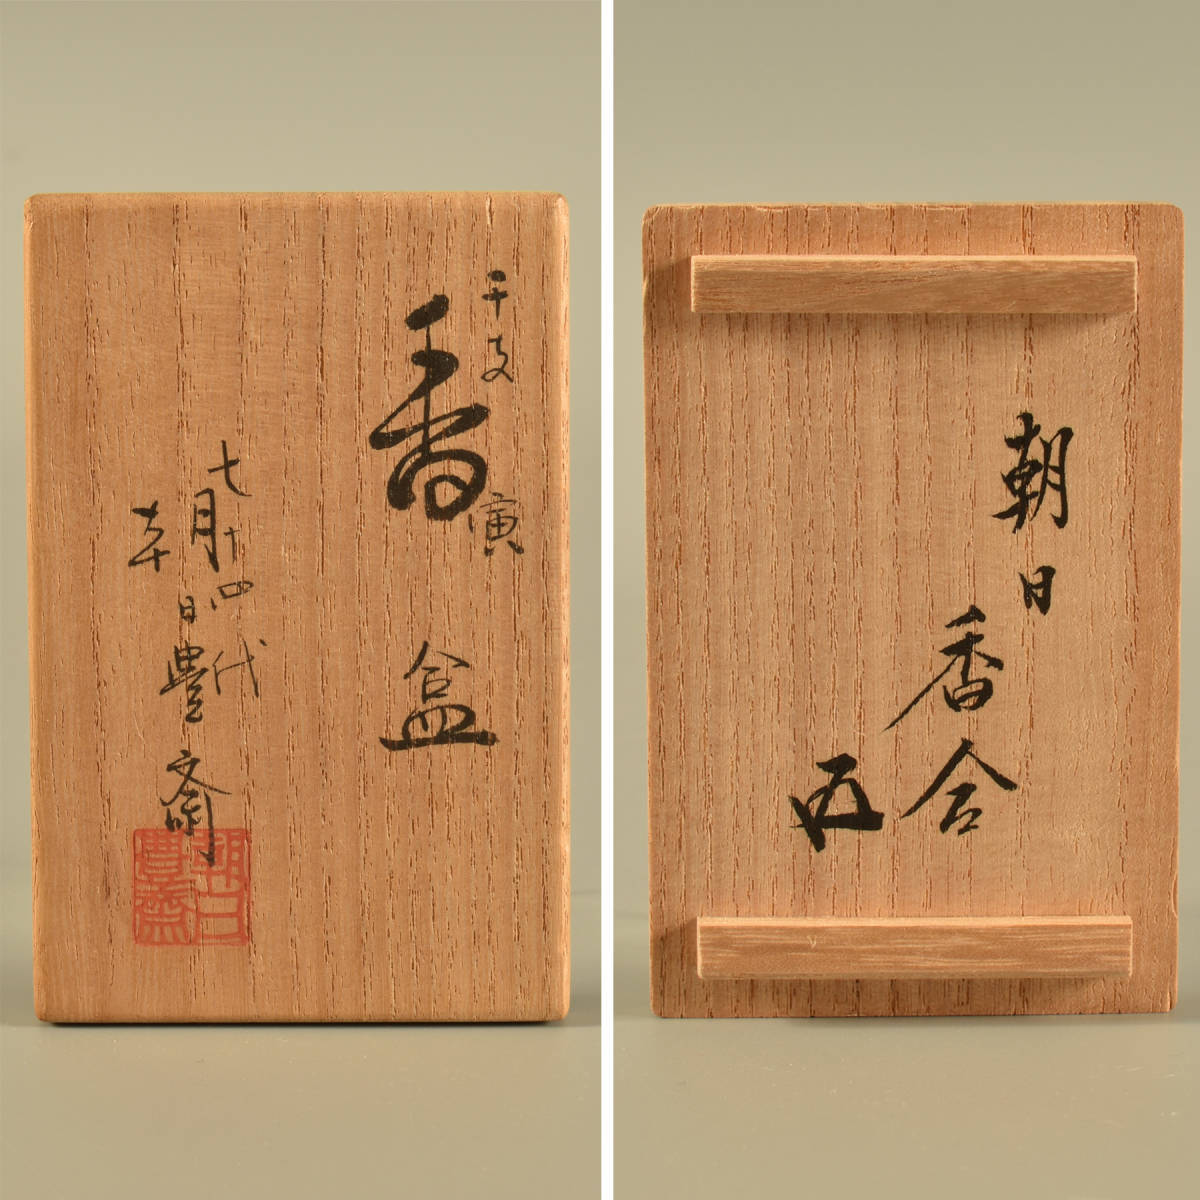 干支 寅
香盒
十四代
朝日豊斎
朝日豊斎
朝日
香合